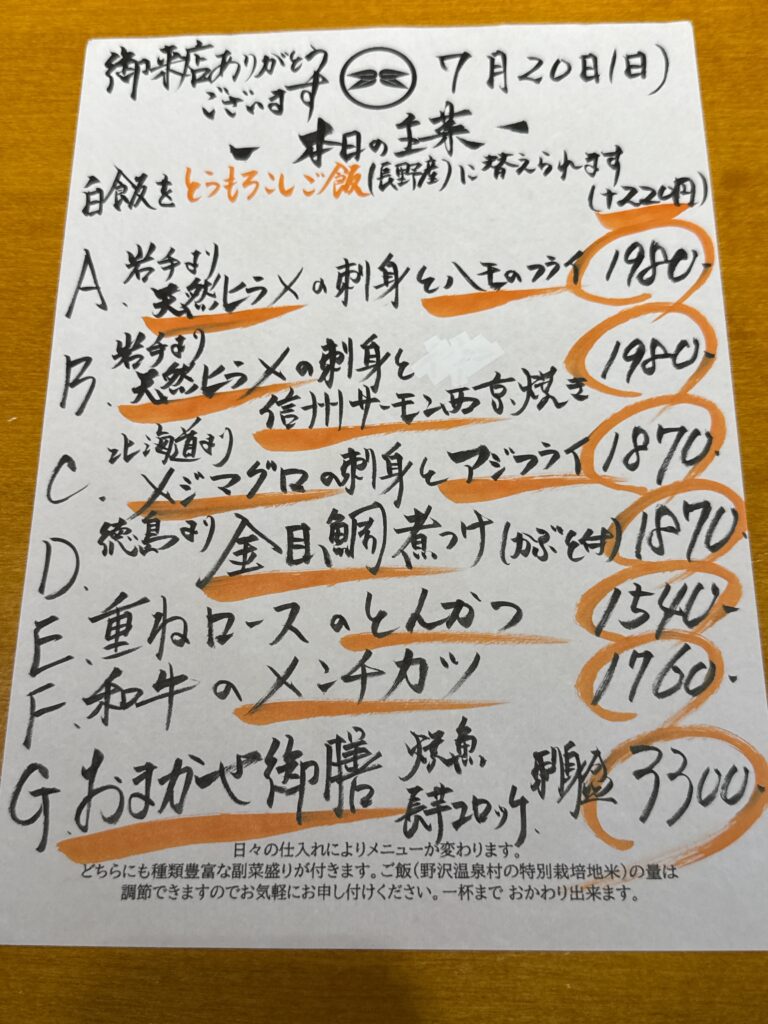 御来店ありがとう
ございます
7月20日(日)
- 本日の主菜 -
白飯をとうもろこしご飯(長野産)に替えられます
(+220円)
A. 岩手より
天然ヒラメの刺身とハモのフライ 1980-
B. 岩手より
天然ヒラメの刺身と 1980-
信州サーモン西京焼き
C. 北海道より
メジマグロの刺身とアジフライ 1870-
D. 徳島より 金目鯛煮つけ(かぶと付) 1870-
E. 重ねロースのとんかつ 1540-
F. 和牛のメンチカツ 1760-
G. おまかせ御膳 焼魚 刺身盛 3300-
長芋コロッケ
日々の仕入れによりメニューが変わります。
どちらにも種類豊富な副菜盛りが付きます。ご飯(野沢温泉村の特別栽培地米)の量は
調節できますのでお気軽にお申し付けください。一杯まで おかわり出来ます。